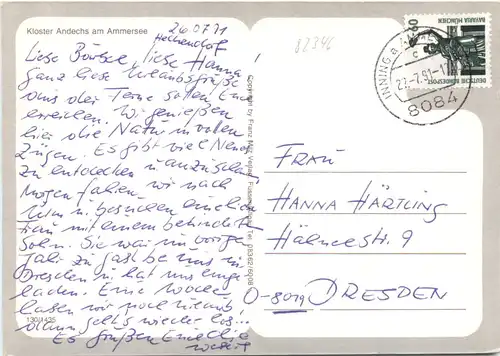 Kloster Andechs am Ammersee
26.07.91
Hechendorf
82346
Liebe Börbee, liebe Hanna!
ganz liebe Urlaubsgrüße
aus der Ferne sollen Euch
erreichen. Wir genießen
hier die Natur in vollen
Zügen. Es gibt viel Neues
zu entdecken u. anzuschauen
Morgen fahren wir nach
Ulm u. besuchen eine
Frau mit einem behinderten
Sohn. Sie war im vorigen
Jahr zu Gast bei uns in
Dresden u. hat uns einge-
laden. Eine Woche
haben wir noch Urlaub
dann geht's wieder los...
Es grüßen Euch lie
130/1425
Copyright by Franz Verlag
INNING a AMMERSEE
c
27.-7.91-17
8084
60
BAVARIA MÜNCHEN
DEUTSCHE BUNDESPOST
FRAU
HANNA HÄRTLING
Hähnelstr. 9
O-8019 DRESDEN